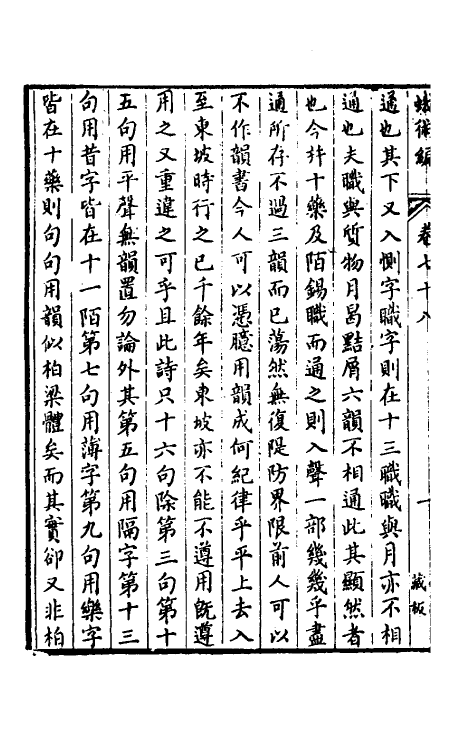 蛾術編 卷七十八 一 藏板
通也其下又入惻字職字則在十三職職與月亦不相
通也夫職與質物月曷黠屑六韻不相通此其顯然者
也今并十藥及陌錫職而通之則入聲一部幾幾乎盡
通所存不過三韻而已蕩然無復隄防界限前人可以
不作韻書今人可以憑臆用韻成何紀律乎平上去入
至東坡時行之已千餘年矣東坡亦不能不遵用旣遵
用之又重違之可乎且此詩只十六句除第三句第十
五句用平聲無韻置勿論外其第五句用隔字第十三
句用昔字皆在十一陌第七句用薄字第九句用樂字
皆在十藥則句句用韻似柏梁體矣而其實卻又非柏